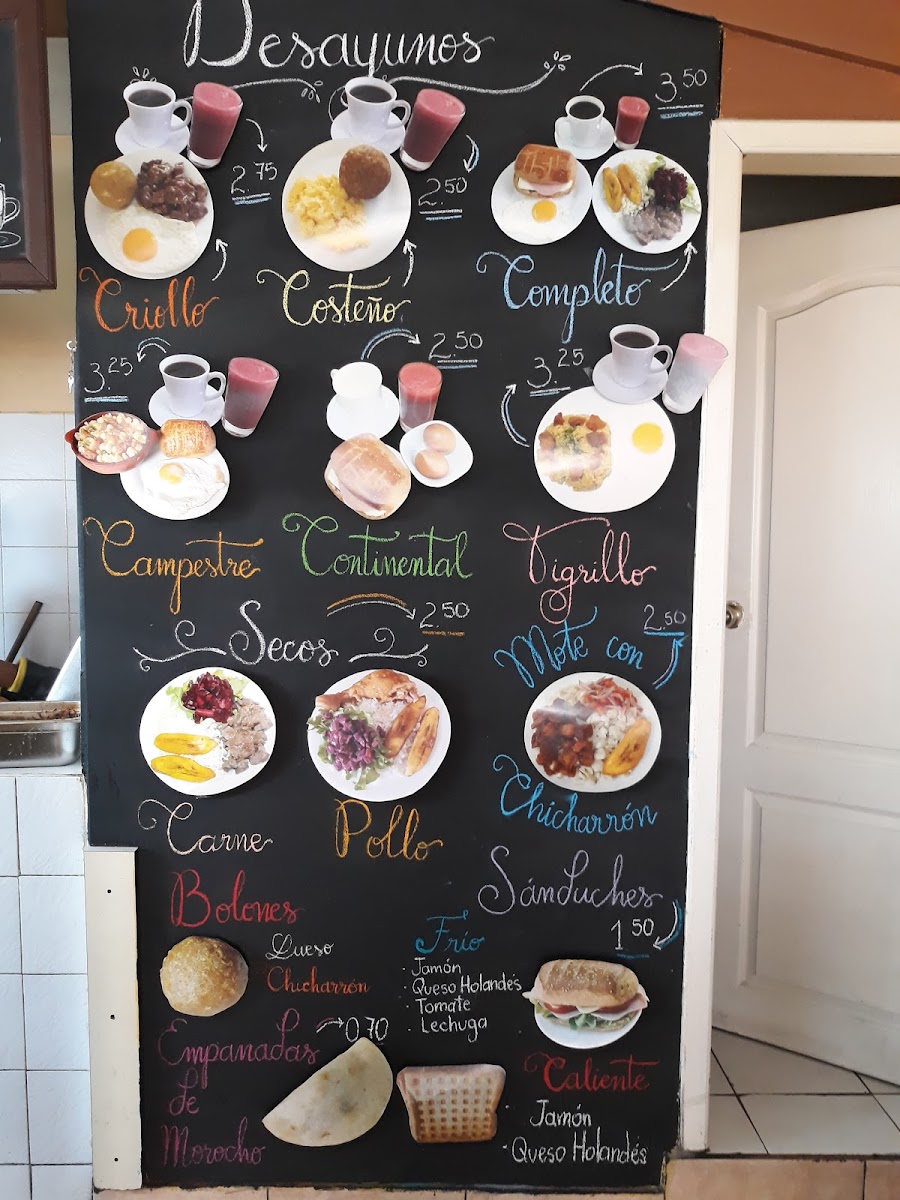 Desayunos
2.75
2.50
3.50
Criollo
Costeño
Completo
3.25
2.50
3.25
Campestre
Continental
Tigrillo
Secos
2.50
Mote con
2.50
Chicharrón
Carne
Pollo
Bolones
Queso
Chicharrón
Sánduches
1.50
Frío
· Jamón
· Queso Holandés
· Tomate
· Lechuga
Empanadas
de
Morocho
0.70
Caliente
· Jamón
· Queso Holandés